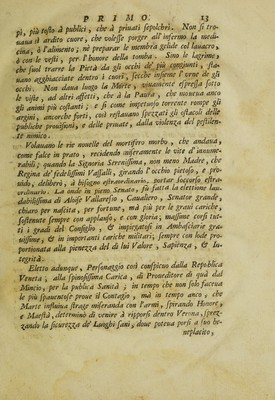 PRIMO. 13
pi, più tosto à publici, che à priuati sepolchri. Non si tro-
naua sì ardito cuore, che volesse porger all'infermo la medi-
cina, ò l'alimento; nè preparar le membra gelide col lauacro,
ò con le vesti, per l'honore della tomba. Sino le lagrime,
che suol trarre la Pietà da gli occhi de' più congiunti, sta-
uano agghiacciate dentro i cuori, secche insieme l'vrne de gli
occhi. Non daua luogo la Morte, viuamente espressa sotto
le viste, ad altri affetti, che à la Paura, che moueua anco
gli animi più costanti; e sì come impetuoso torrente rompe gli
argini, ancorche forti, così restauano spezzati gli ostacoli delle
publiche prouisioni, e delle priuate, dalla violenza del pestilen-
te nimico.
Volauano le rie nouelle del mortifero morbo, che andaua,
come falce in prato, recidendo miseramente le vite d'innume-
rabili; quando la Signoria Serenissima, non meno Madre, che
Regina de' fedelissimi Vassalli, girando l'occhio pietoso, e pro-
uido, deliberò, à bisogno estraordinario, portar soccorso estrao-
rdinario. Là onde in pieno Senato, fù fatta la elettione lau-
dabilissima di Aloise Vallaresso, Caualiero, Senator grande,
chiaro per nascita, per fortune, mà più per le graui cariche,
sostenute sempre con applauso, e con gloria; massime corsi tut-
ti i gradi del Consiglio, & impiegatosi in Ambasciarie gra-
uissime, & in importanti cariche militari; sempre con lode pro-
portionata alla pienezza del di lui Valore, Sapienza, & In-
tegrità.
Eletto adunque, Personaggio così conspicuo dalla Republica
Veneta; alla spinosissima Carica, di Proueditore di quà dal
Mincio, per la publica Sanità; in tempo che non solo faceua
le più spauenteuole proue il Contagio, mà in tempo anco, che
Marte instaua strage miseranda con l'armi, spirando Honore,
e Maestà, determinò di venire à ripporsi dentro Verona, sprez-
zando la sicurezza de' Luoghi sani, doue poteua porsi à suo be-
neplacito,